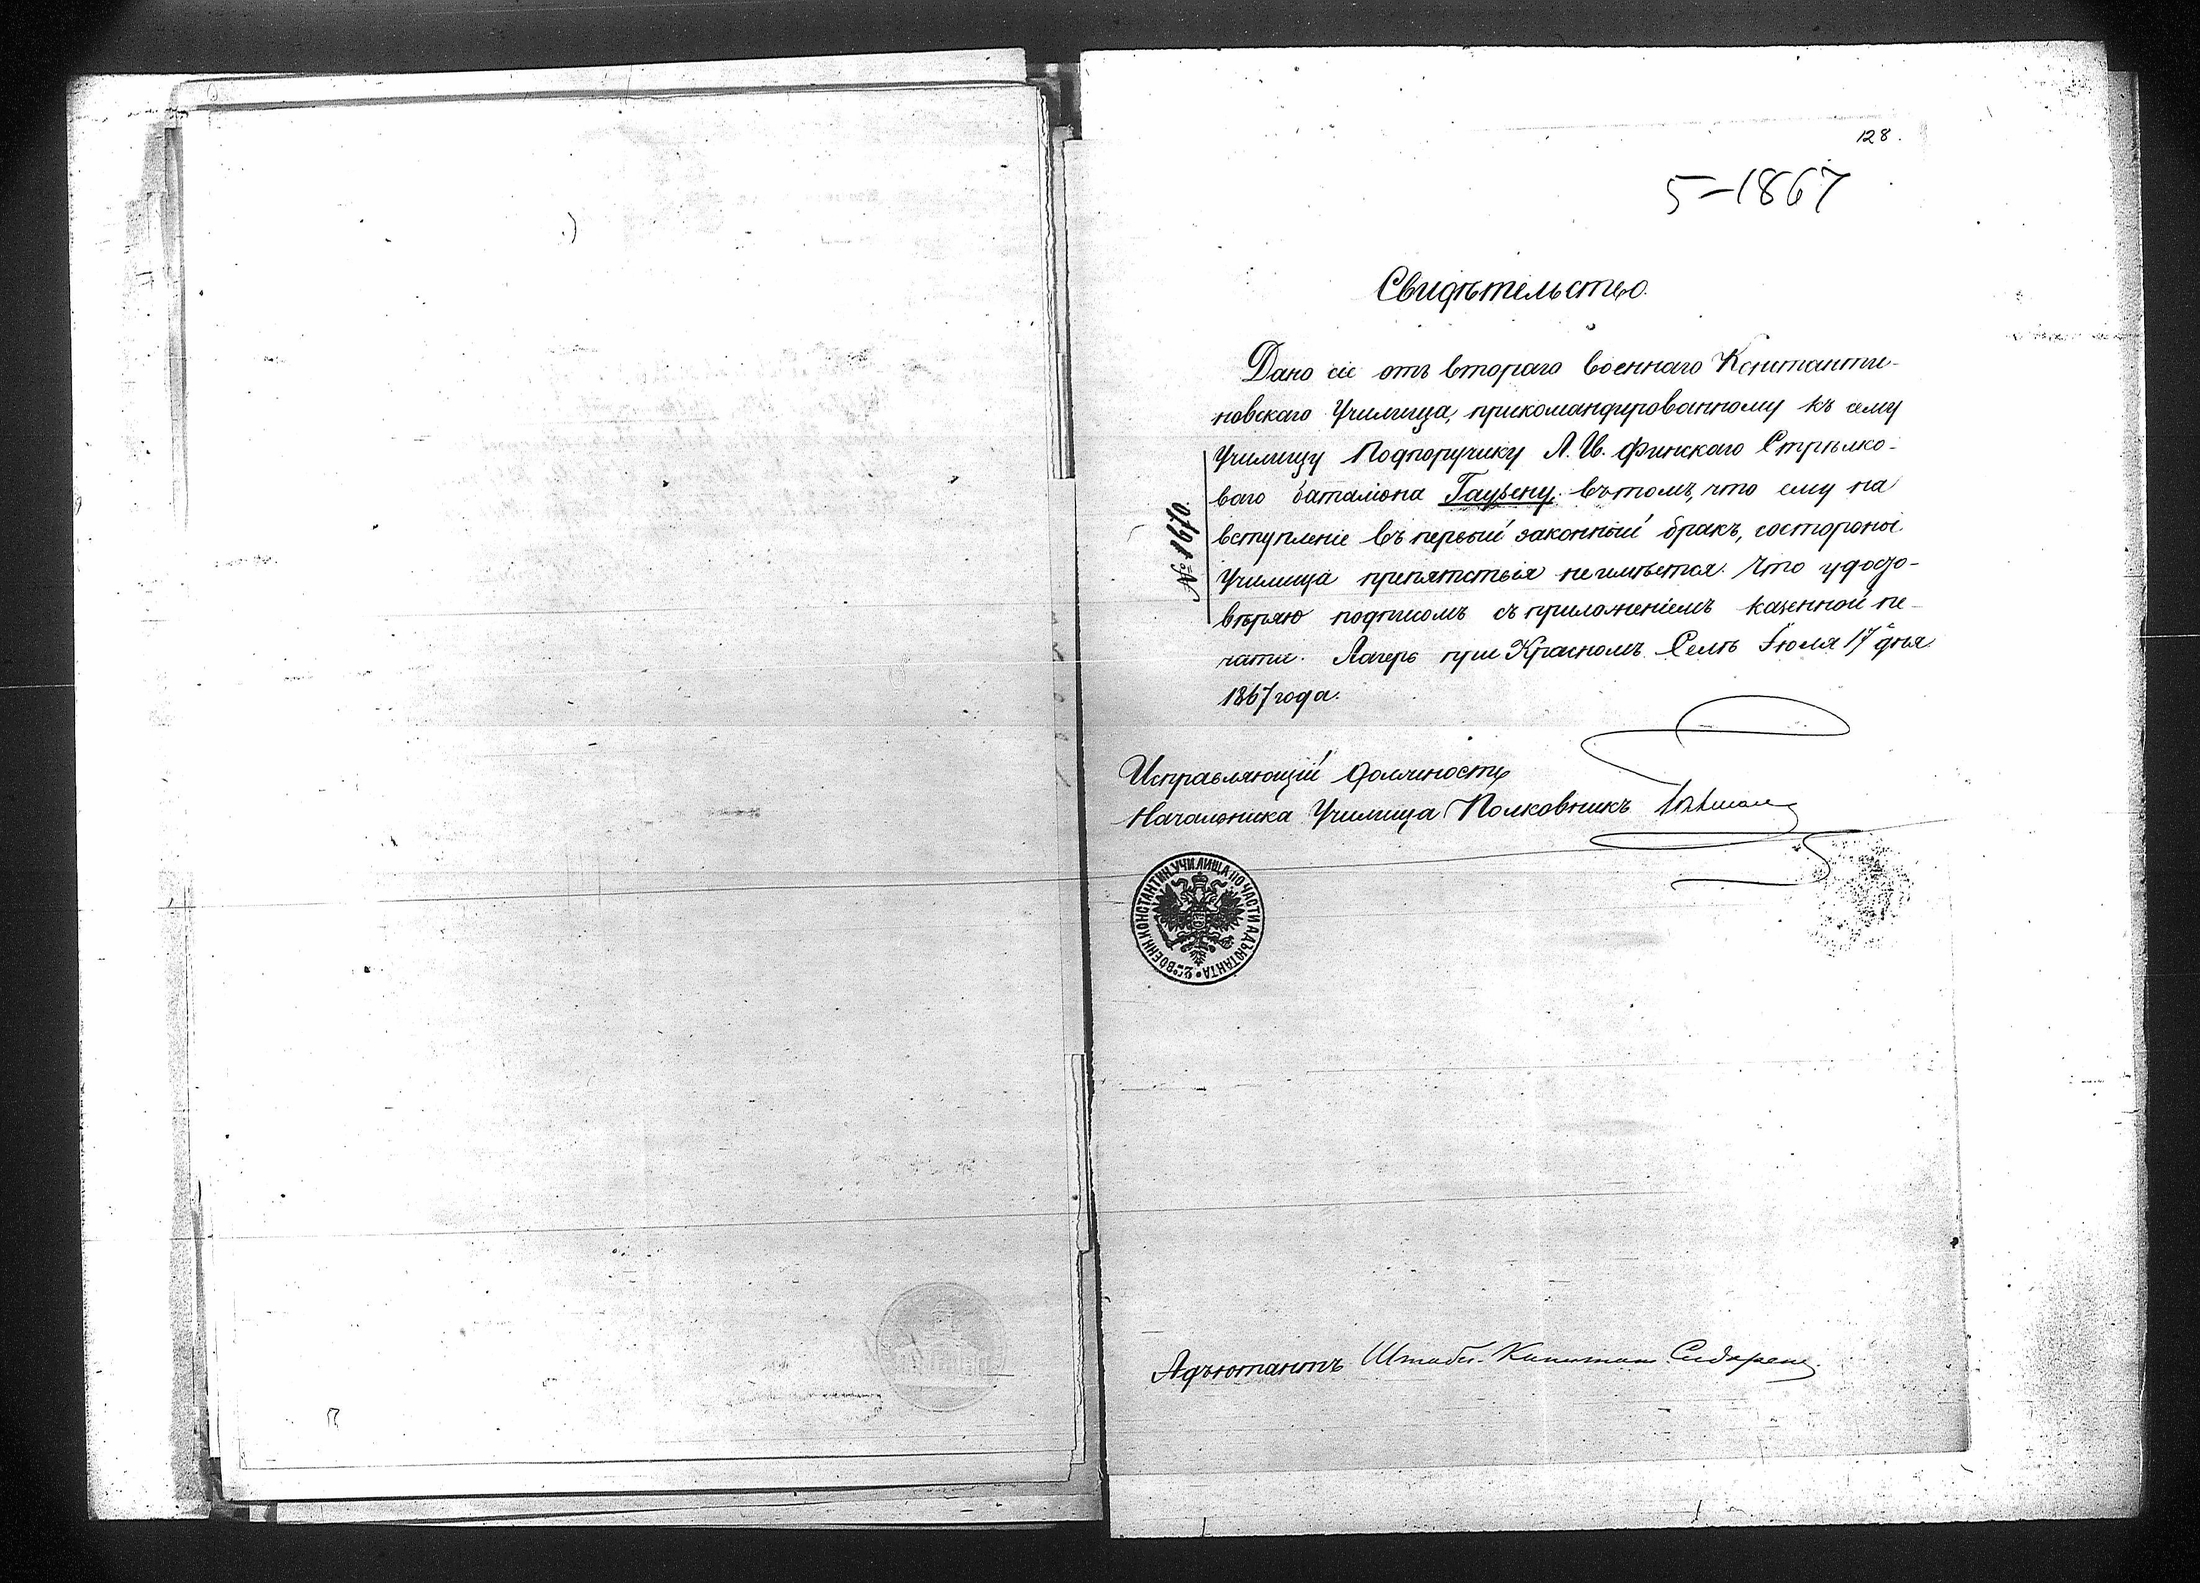 128.
5-1867
Свидѣтельство.
Дано сіе отъ втораго военнаго Константи-
новскаго Училища, прикомандированному къ сему
Училищу Подпоручику Л. Гв. Финскаго Стрѣлко-
ваго баталіона Гаузену, въ томъ, что ему на
вступленіе въ первый законный бракъ, со стороны
Училища препятствія не имѣется. Что удосто-
вѣряю подписомъ съ приложеніемъ казенной пе-
чати. Лагерь при Красномъ Селѣ Іюля 17 дня
1867 года.
№ 1670.
Исправляющій должность
Начальника Училища Полковникъ
2го ВОЕНН. КОНСТАНТИН. УЧИЛИЩА ПО ЧАСТИ АДЪЮТАНТА
Адъютантъ Штабсъ-Капитанъ